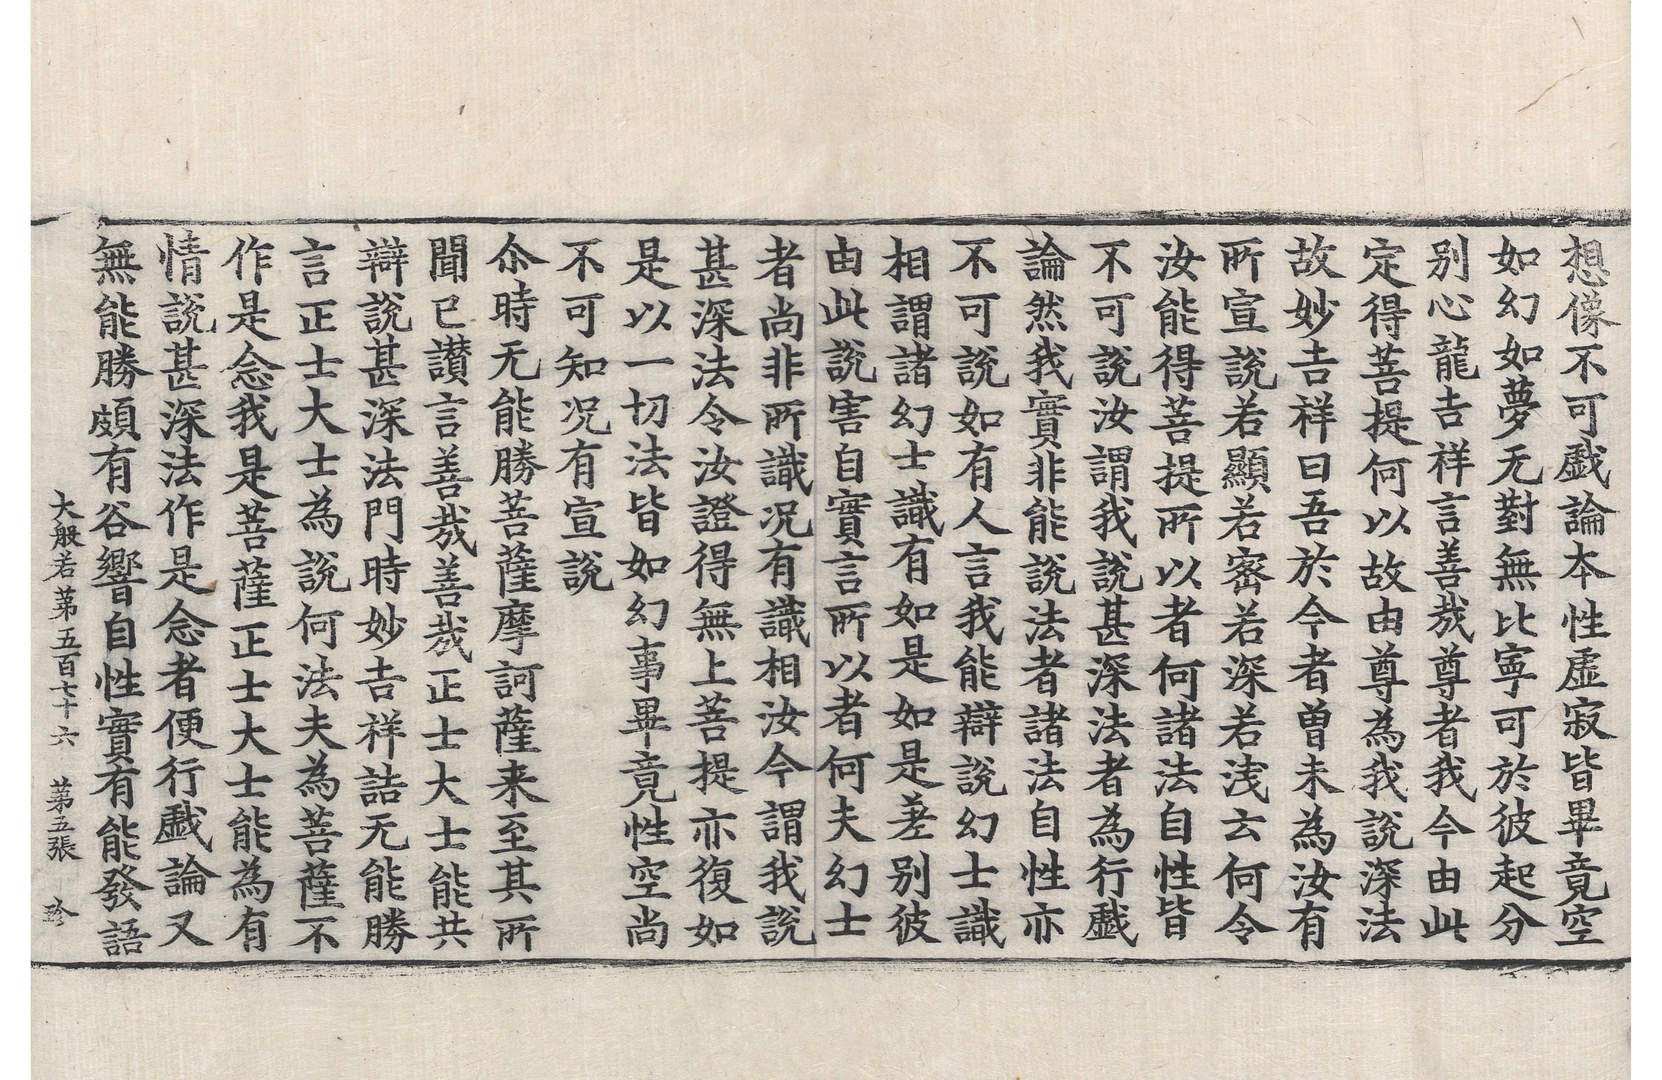 想像不可戱論本性虛寂皆畢竟空
如幻如夢无對無比寧可於彼起分
别心龍吉祥言善㢤尊者我今由此
定得菩提何以故由尊為我說深法
故妙吉祥曰吾於今者曽未為汝有
所宣說若顯若密若深若淺云何令
汝能得菩提所以者何諸法自性皆
不可說汝謂我說甚深法者為行戱
論然我實非能說法者諸法自性亦
不可說如有人言我能辯說幻士識
相謂諸幻士識有如是如是差别彼
由此說害自實言所以者何夫幻士
者尚非所識况有識相汝今謂我說
甚深法令汝證得無上菩提亦復如
是以一切法皆如幻事畢竟性空尚
不可知况有宣說
尒時无能勝菩薩摩訶薩来至其所
聞已讃言善㢤善㢤正士大士能共
辯說甚深法門時妙吉祥詰无能勝
言正士大士為說何法夫為菩薩不
作是念我是菩薩正士大士能為有
情說甚深法作是念者便行戱論又
無能勝頗有谷響自性實有能發語
大般若第五百七十六　第五張　珎